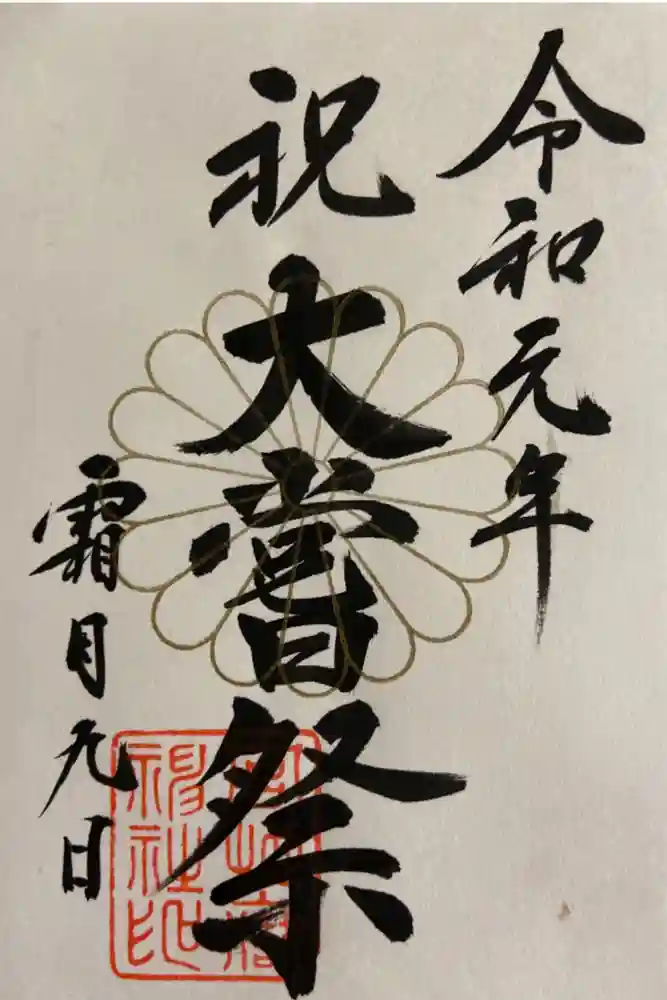 令和元年
祝
大嘗祭
霜月九日